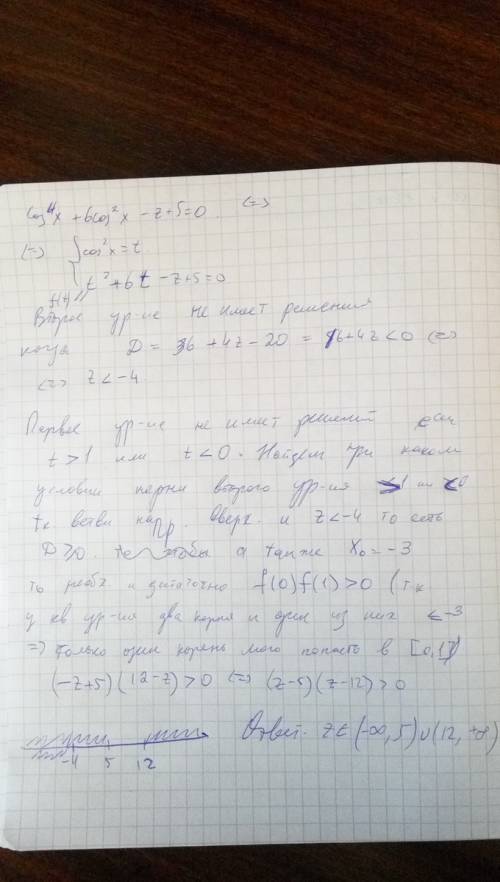 cos⁴x + 6cos²x - z + 5 = 0 (=)
(=) { cos²x = t
t² + 6t - z + 5 = 0
f(t)
Второе ур-ие не имеет решения
когда D = 36 + 4z - 20 = 16 + 4z < 0 (=)
(=) z < -4
Первое ур-ие не имеет решений если
t > 1 или t < 0. Найдем при каком
условии корни второго ур-ия > 1 или < 0
тк ветви напр. вверх. и z < -4 то есть
D ≥ 0. чтобы а также x₀ = -3
то необх. и достаточно f(0)f(1) > 0 (тк
у кв ур-ия два корня и один из них < -3
=) только один корень может попасть в [0,1])
(-z+5)(12-z) > 0 (=) (z-5)(z-12) > 0
-4 5 12 Ответ: z ∈ (-∞, 5) ∪ (12, +∞)